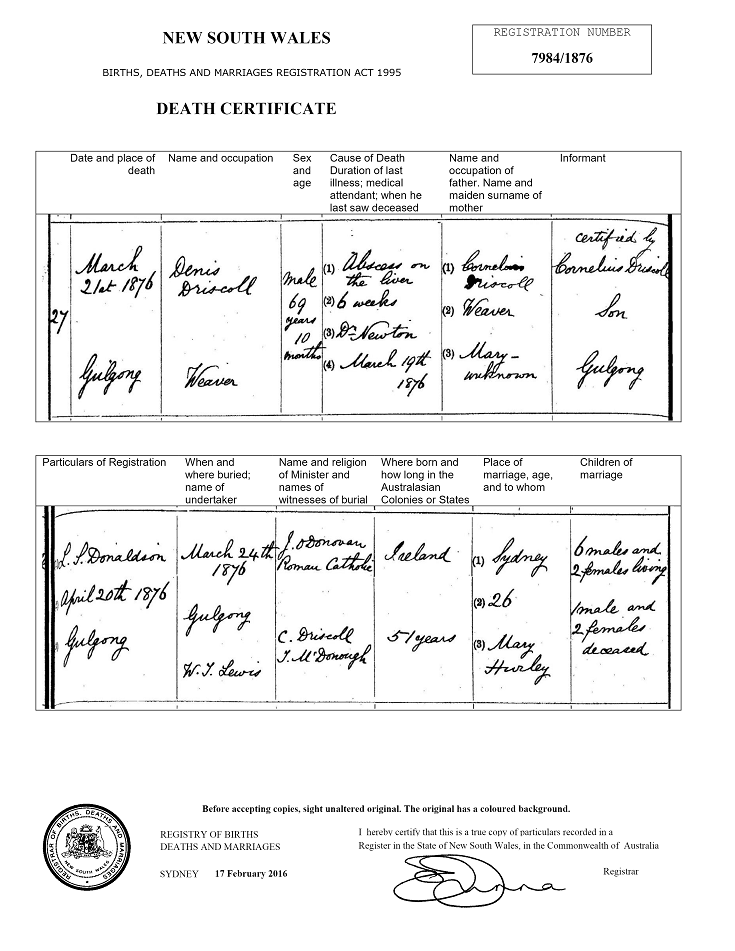 NEW SOUTH WALES
REGISTRATION NUMBER
7984/1876
BIRTHS, DEATHS AND MARRIAGES REGISTRATION ACT 1995
DEATH CERTIFICATE
Date and place of
death
Name and occupation
Sex
and
age
Cause of Death
Duration of last
illness; medical
attendant; when he
last saw deceased
Name and
occupation of
father. Name and
maiden surname of
mother
Informant
27
March
21st 1876
Gulgong
Denis
Driscoll
Weaver
Male
69
years
10
months
(1) Abscess on
the liver
(2) 6 weeks
(3) Dr Newton
(4) March 19th
1876
(1) Cornelius
Driscoll
(2) Weaver
(3) Mary -
unknown
certified by
Cornelius Driscoll
Son
Gulgong
Particulars of Registration
When and
where buried;
name of
undertaker
Name and religion
of Minister and
names of
witnesses of burial
Where born and
how long in the
Australasian
Colonies or States
Place of
marriage, age,
and to whom
Children of
marriage
Donaldson
April 20th 1876
Gulgong
March 24th
1876
Gulgong
W. J. Lewis
J. O'Donovan
Roman Catholic
C. Driscoll
T. McDonough
Ireland
51 years
(1) Sydney
(2) 26
(3) Mary
Hurley
6 males and
2 females living
1 male and
2 females
deceased
Before accepting copies, sight unaltered original. The original has a coloured background.
REGISTRAR OF BIRTHS, DEATHS AND MARRIAGES
NEW SOUTH WALES
REGISTRY OF BIRTHS
DEATHS AND MARRIAGES
SYDNEY 17 February 2016
I hereby certify that this is a true copy of particulars recorded in a
Register in the State of New South Wales, in the Commonwealth of Australia
Registrar